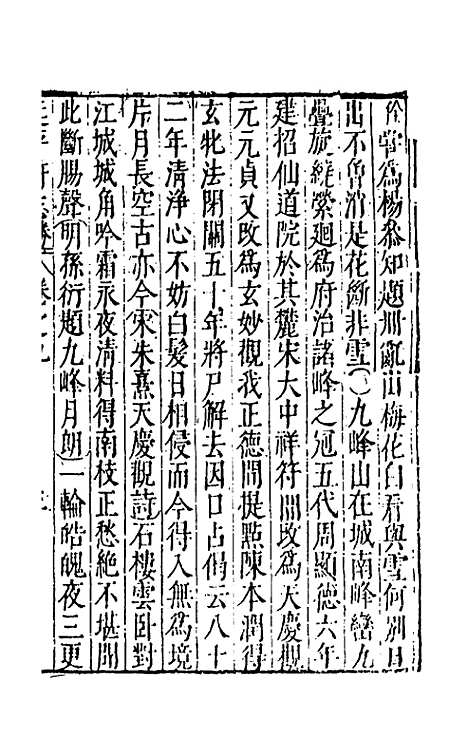 嘗爲楊叅知題 山梅花白看與雪何別日
出不曾消是花斷非雪〇九峰山在城南峰巒九
疊旋繞縈迴爲府治諸峰之冠五代周顯德六年
建招仙道院於其麓宋大中祥符間改爲天慶觀
元元貞又改爲玄妙觀我正德間提點陳本潤得
玄牝法閉關五十年將尸解去因口占偈云八十
二年清淨心不妨白髮日相侵而今得入無爲境
片月長空古亦今宋朱熹天慶觀詩石樓雲卧對
江城城角吟霜永夜清料得南枝正愁絶不堪聞
此斷腸聲明孫衍題九峰月朗一輪皓魄夜三更